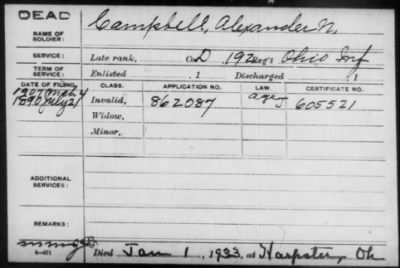 DEAD
NAME OF SOLDIER: Campbell, Alexander N.
SERVICE: Late rank, Co. D, 192 Reg't Ohio Inf
TERM OF SERVICE: Enlisted , 1 Discharged , 1
DATE OF FILING. CLASS. APPLICATION NO. LAW. CERTIFICATE NO.
1907 Mch 4
1890 July 21 Invalid, 862087 605521
Widow,
Minor,
ADDITIONAL SERVICES:
REMARKS:
Died Jan 1, 1933, at Harpster, Oh